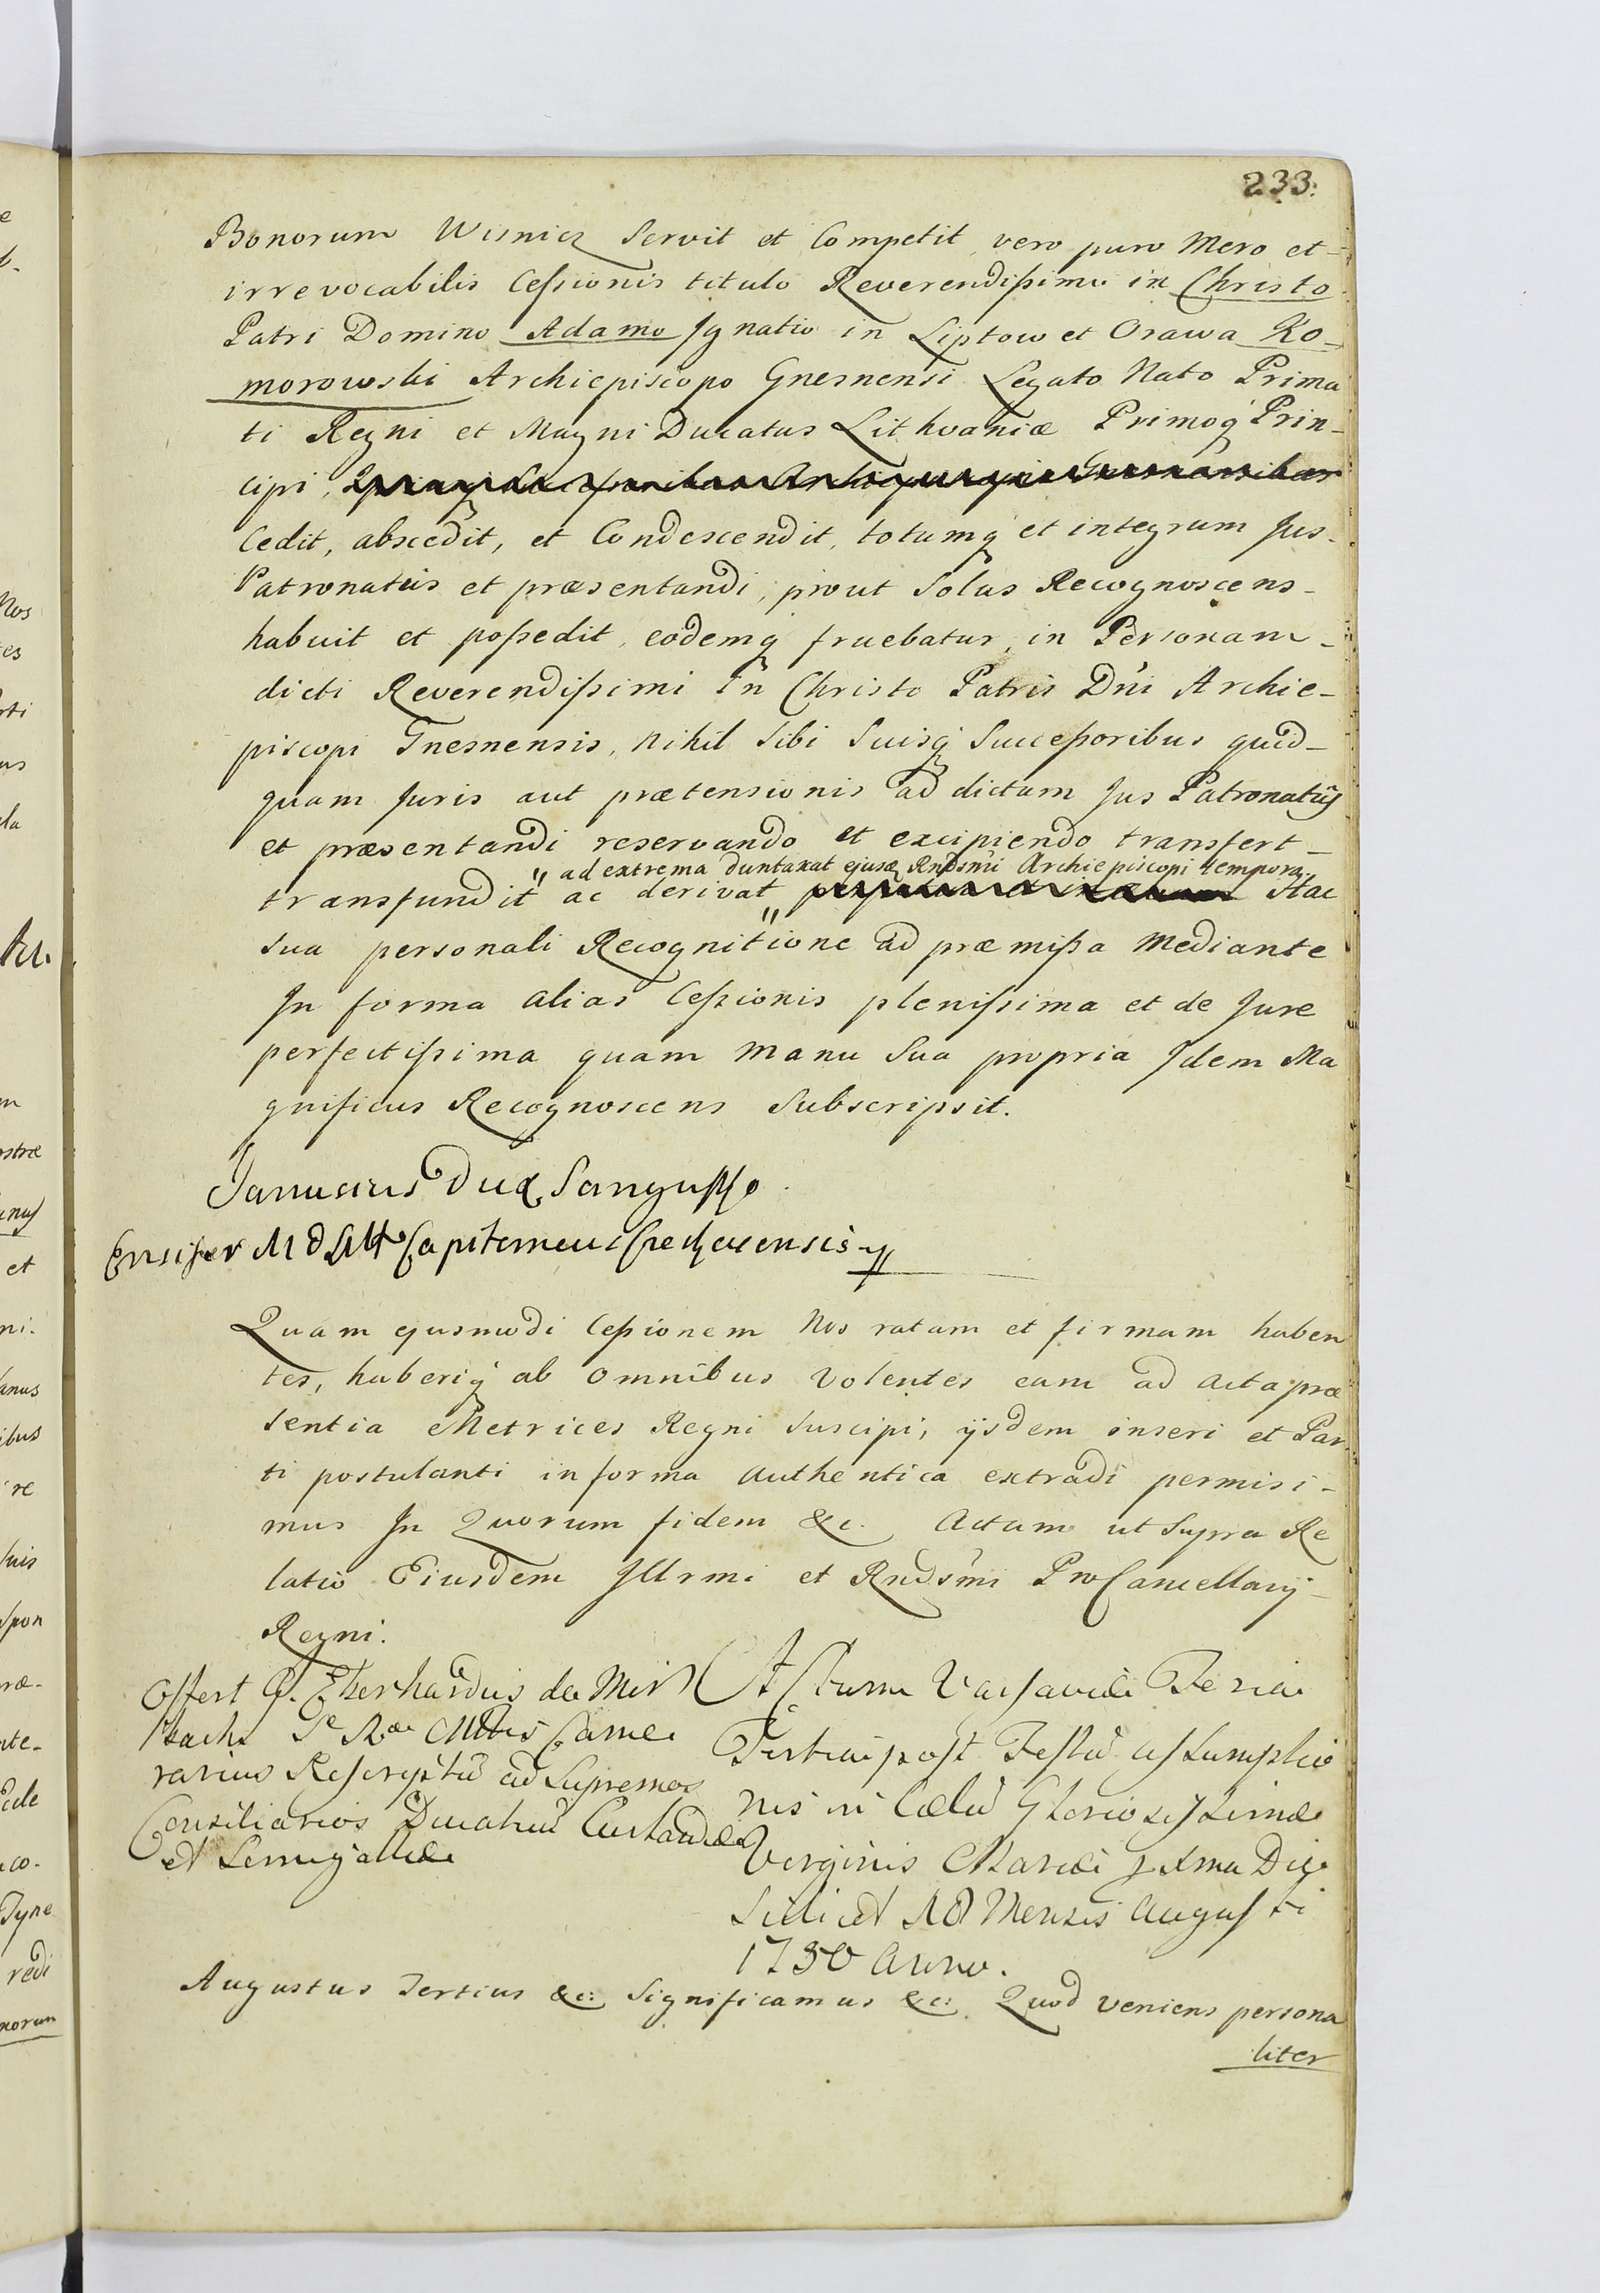 233.
Bonorum Wisnicz Servit et Competit, vero puro Mero et
irrevocabilis Cessionis titulo Reverendissimo in Christo
Patri Domino Adamo Jgnatio in Liptow et Orawa Ko-
morowski Archiepiscopo Gnesnensi Legato Nato Prima
ti Regni et Magni Ducatus Lithvaniæ Primoq Prin-
cipi,
Cedit, abscedit, et Condescendit, totumq et integrum Jus-
Patronatûs et præsentandi, prout Solus Recognoscens-
habuit et possedit, eodemq fruebatur, in Personam-
dicti Reverendissimi in Christo Patris Dni Archie-
piscopi Gnesnensis, nihil Sibi Suisq Successoribus quid-
quam Juris aut prætensionis ad dictum Jus Patronatûs
et præsentandi reservando et excipiendo transfert-
" ad extrema duntaxat ejusq Rndsmi Archiepiscopi tempora,
transfundit ac derivat Hac
sua personali Recognitione ad præmissa Mediante
Jn forma alias Cessionis plenissima et de Jure
perfectissima quam Manu Sua propria Jdem Ma
gnificus Recognoscens Subscripsit.
Janusius Dux Sanguszko
Ensifer M D Litt Capitaneus Crecoviensis
Quam ejusmodi Cessionem Nos ratam et firmam haben
tes, haberiq ab omnibus Volentes eam ad Acta præ
sentia Metrices Regni Suscipi, ijsdem inseri et Par
ti postulanti in forma Authentica extradi permisi-
mus Jn Quorum fidem &c. Actum ut Supra Re
latio Eiusdem Jllrmi et Rndsmi ProCancellarij-
Regni.
Offert G. Eberhardus de Mir
bach Sæ Ræ Mttis Came
rarius Rescriptū ad Supremos
Consiliarios Ducatuū Curlandiæ
et Semigalliæ
Actum Varsaviæ Feria
Tertia post Festū Assumptio
nis in Cælū Gloriosissimæ
Virginis Mariæ Die
Scilicet Mensis Augusti
1750 Anno.
Augustus Tertius &c: Significamus &c: Quod veniens persona
liter